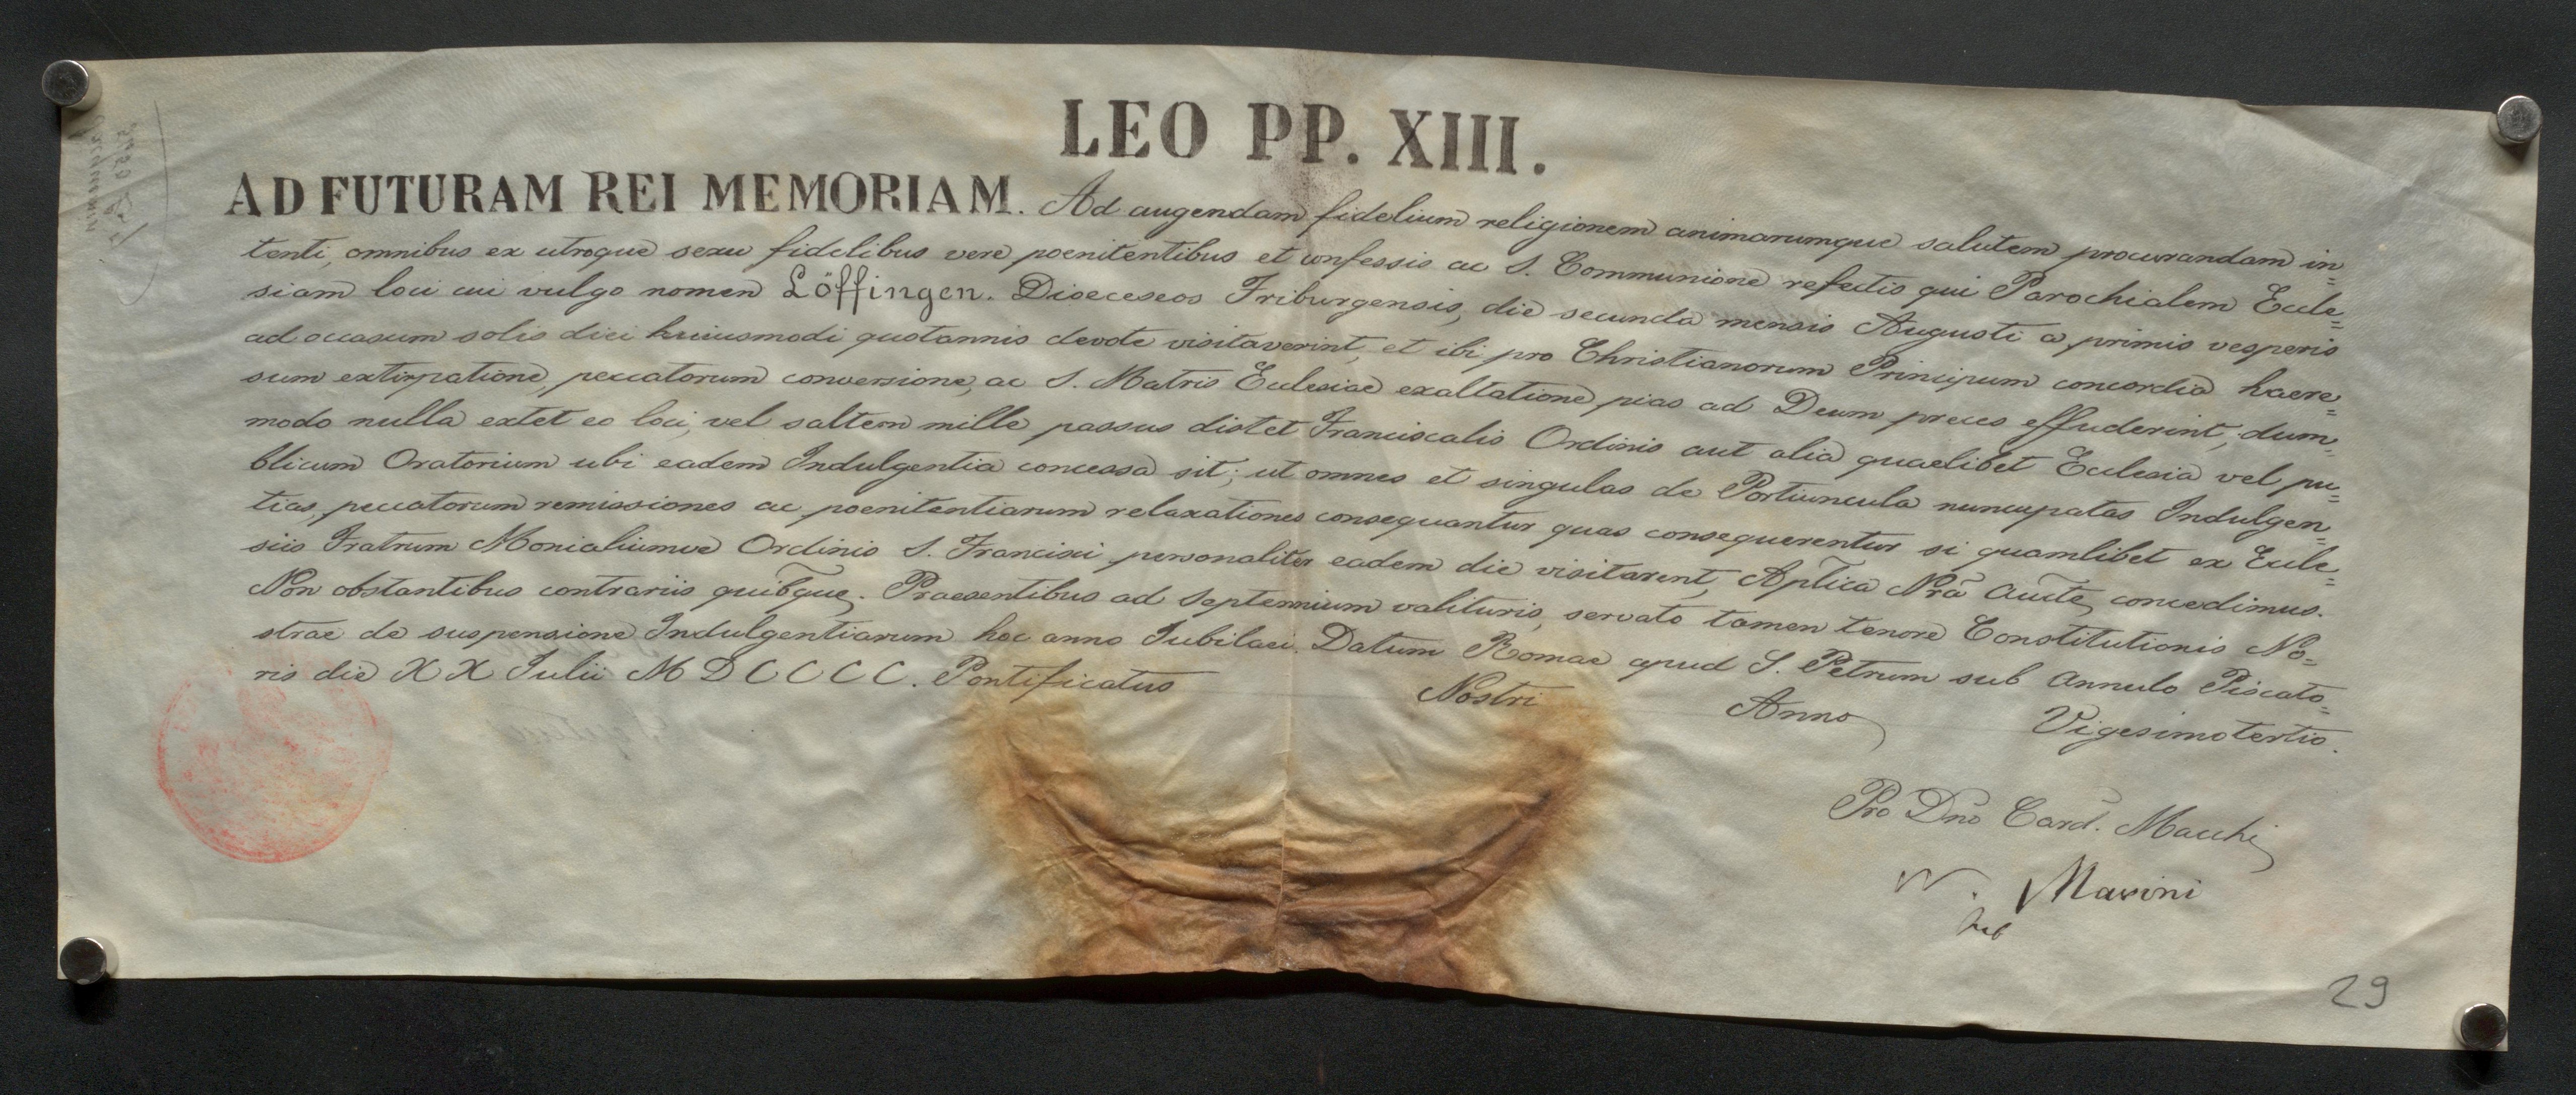 LEO PP. XIII.
AD FUTURAM REI MEMORIAM. Ad augendam fidelium religionem animarumque salutem procurandam in=
tenti, omnibus ex utroque sexu fidelibus vere poenitentibus et confessis ac S. Communione refectis qui Parochialem Eccle=
siam loci cui vulgo nomen Löffingen. Dioeceseos Friburgensis, die secunda mensis Augusti a primis vesperis
ad occasum solis diei huiusmodi quotannis devote visitaverint, et ibi pro Christianorum Principum concordia haere=
sum extirpatione, peccatorum conversione, ac S. Matris Ecclesiae exaltatione pias ad Deum preces effuderint, dum=
modo nulla extet eo loci, vel saltem mille passus distet Franciscalis Ordinis aut alia quaelibet Ecclesia vel pu=
blicum Oratorium ubi eadem Indulgentia concessa sit; ut omnes et singulas de Portiuncula nuncupatas Indulgen=
tias, peccatorum remissiones ac poenitentiarum relaxationes consequantur quas consequerentur si quamlibet ex Eccle=
siis Fratrum Monialiumve Ordinis S. Francisci personaliter eadem die visitarent, Aplica Nrã Aucte concedimus.
Non obstantibus contrariis quibque. Praesentibus ad Septennium valituris, servato tamen tenore Constitutionis No=
strae de suspensione Indulgentiarum hoc anno Iubilaei. Datum Romae apud S. Petrum sub Annulo Piscato=
ris die XX Iulii MDCCCC. Pontificatus Nostri Anno Vigesimotertio.
Pro Dno Card. Macchi
N. Marini
Sub
29